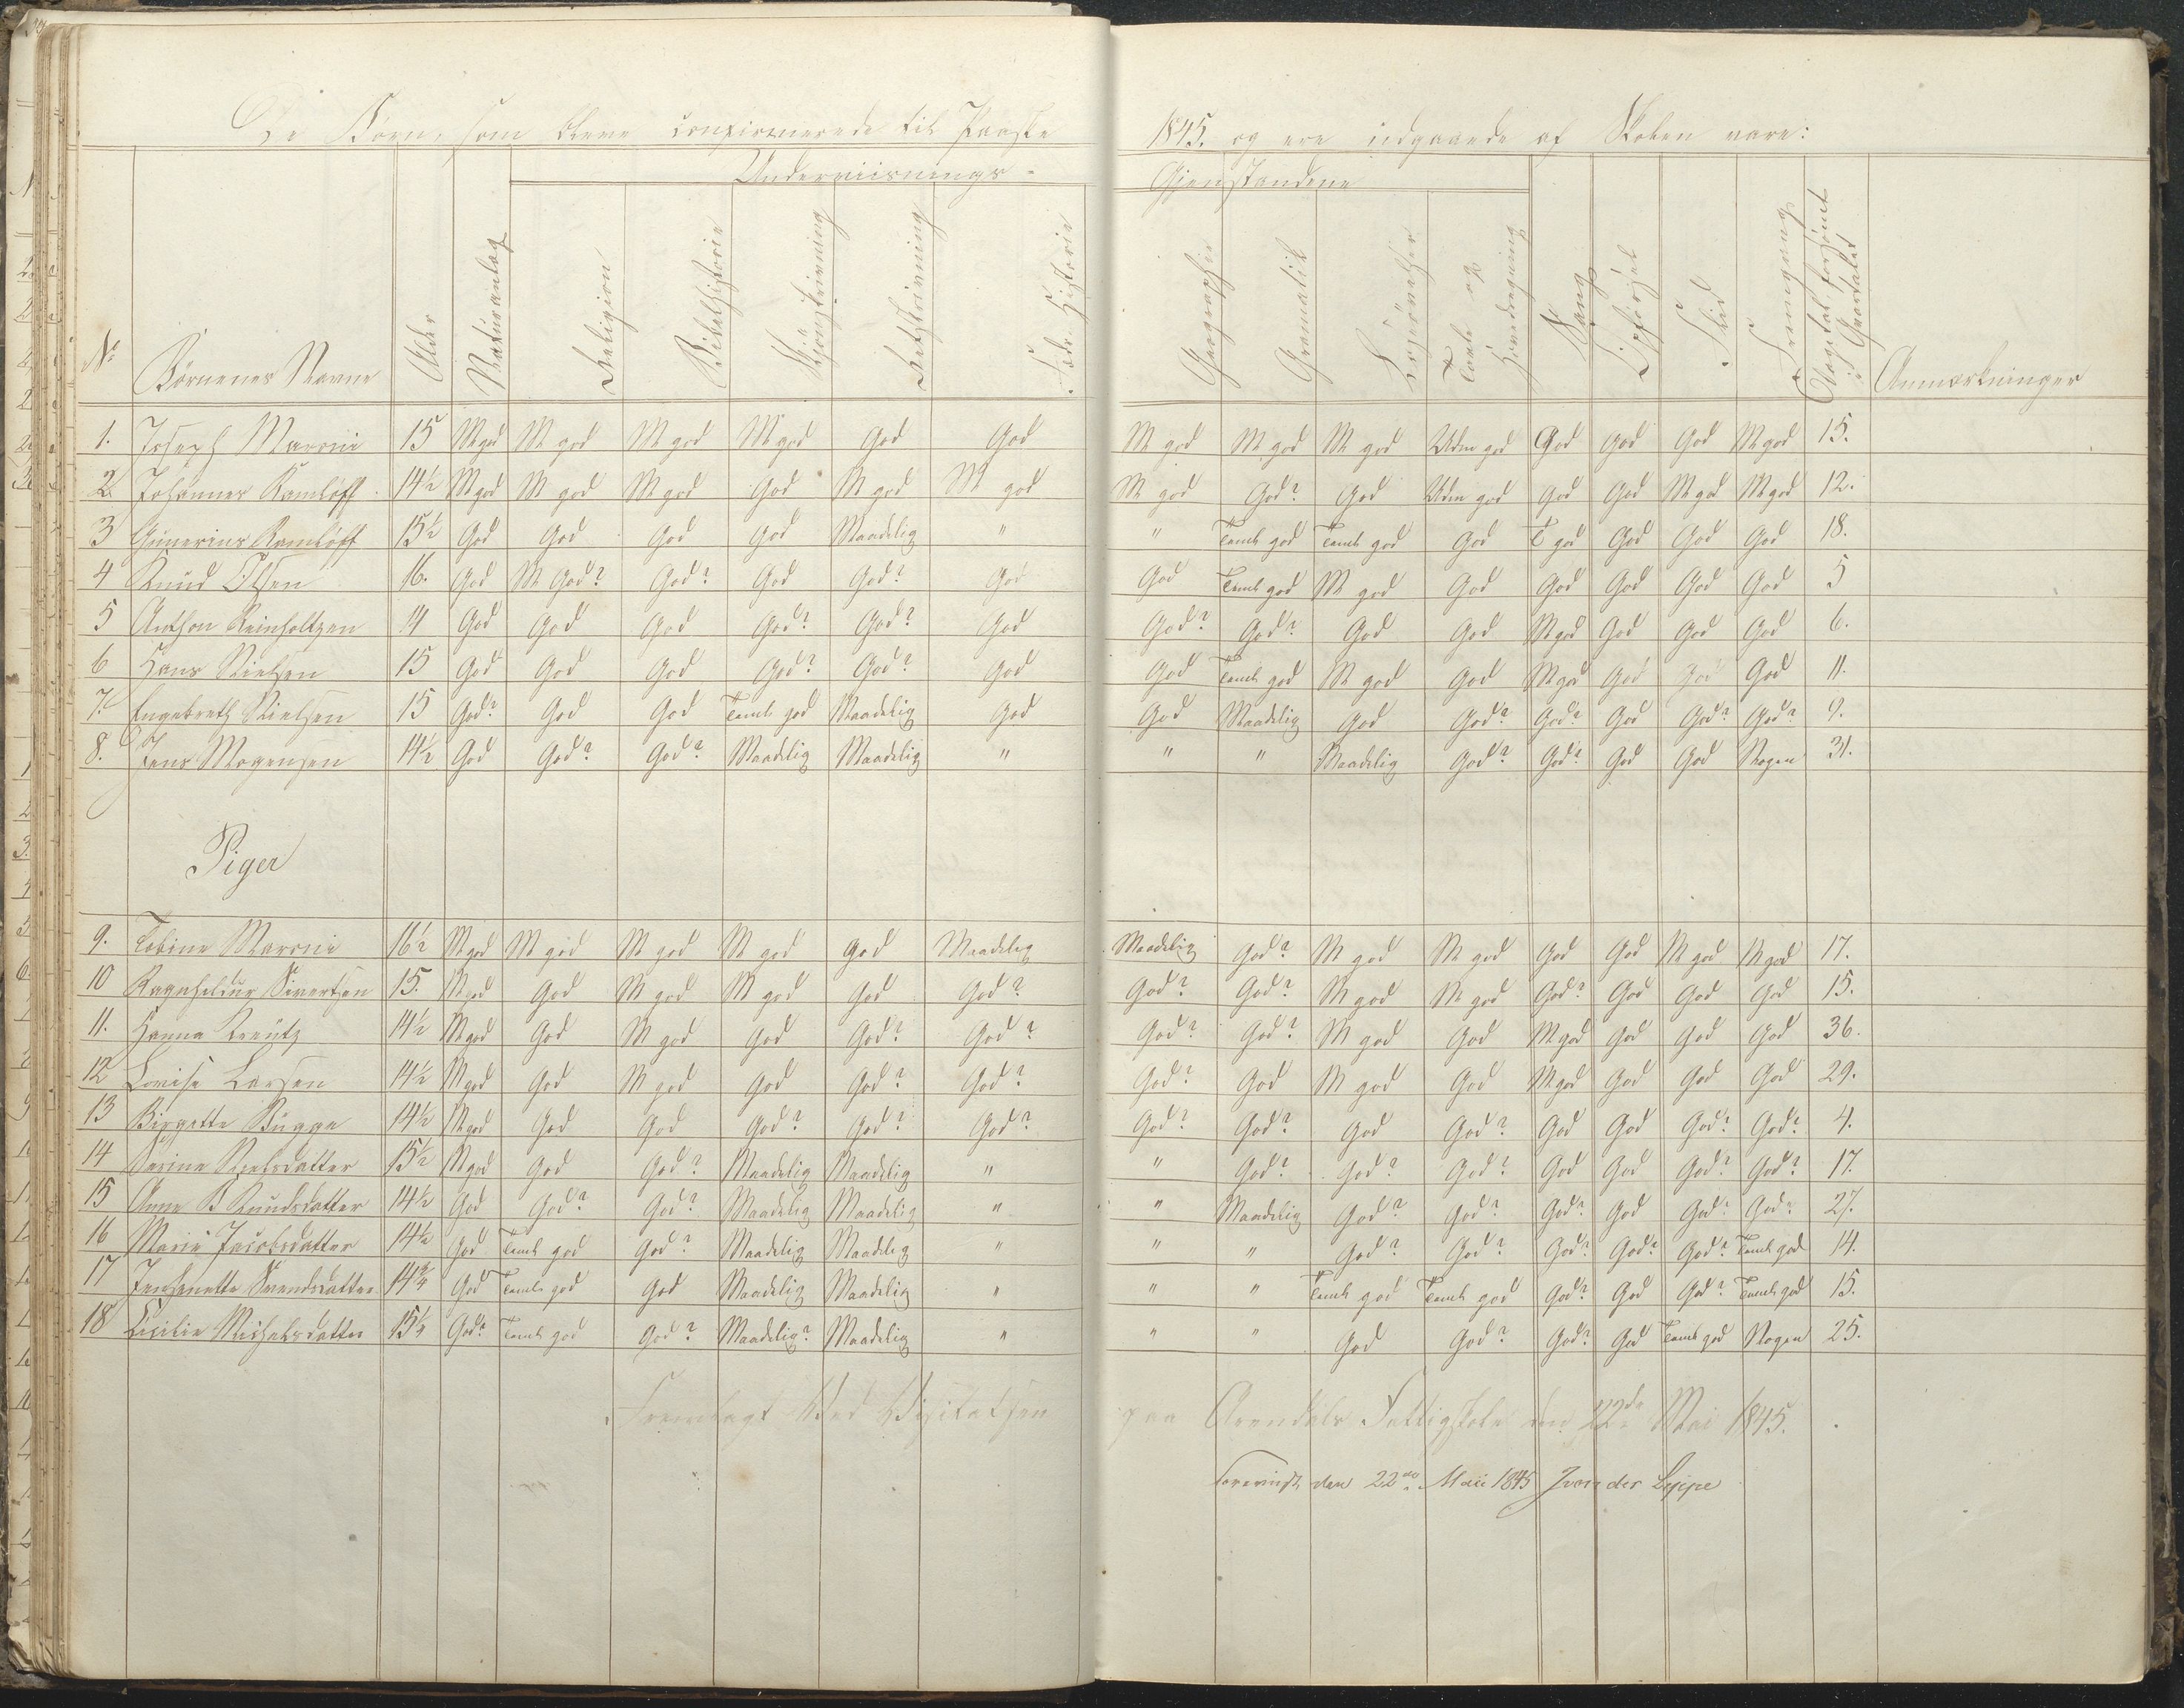 De Börn, som bleve confirmerede til Paaske 1845. og ere udgaaede af Skolen vare:
Underviisnings- Gjenstandene
No Börnenes Navne Alder Naturanlæg Religion Bibelhistorie Skjönskrivning Retskrivning Fædr. Historie Geographie Gramatik Tavle og Hovedregning Sang Flid Fremgang Dagetal forsömt i Qvartalet Anmærkninger
1. Joseph Marcni 15 M god M god M god M god God God M god M god M god Udm god God God God M god 15.
2. Johannes Ramlöff 14½ M god M god M god God M god M god M god God? God Udm god God God M god M god 12.
3 Gunerius Ramlöff 15½ God God God God Maadelig " " Teml god Teml god God T god God God God 18.
4 Knud Olsen 16. God M God? God? God God? God God Teml god M god God God God God God 5
5 Anthon Reinholtzen 14 God God God God? God? God God? God? God God M god God God God 6.
6 Hans Nielsen 15 God God God God? God? God God Teml god M god God M god God God God 11.
7. Engebreth Nielsen 15 God? God God Teml god Maadelig God God Maadelig God God? God? God God? God? 9.
8. Jens Mogensen 14½ God God? God? Maadelig Maadelig " " " Maadelig God? God? God God Nogen 31.
Piger
9. Tobine Marcni 16½ M god M god M god M god God Maadelig Maadelig God? M god M god God God M god M god 17.
10 Ragnhildur Sivertsen 15. M god God M god M god God God? God? God? M god M god God? God God God 15.
11. Hanna Kreutz 14½ M god God M god God God? God? God? God? M god God M god God God God 36.
12 Lovise Larsen 14½ M god God M god God God? God? God? God M god God M god God God God 29.
13 Birgette Bugge 14½ M god God God God? God? God? God? God? God God? God God God? God? 4.
14 Serine Nielsdatter 15½ M god God God? Maadelig Maadelig " " God? God? God? God God God? God? 17.
15 Anne B Knudsdatter 14½ God God? God? Maadelig Maadelig " " Maadelig God? God? God? God God? God? 27.
16 Marie Jacobsdatter 14½ God Teml god God? Maadelig Maadelig " " " God? God? God? God? God? Teml god 14.
17 Svendsdatter 14¾ God Teml god God Maadelig Maadelig " " " Teml god Teml god God? God God? Teml god 15.
18 Cicilie Michelsdatter 15¼ God? Teml god God? Maadelig? Maadelig " " " God God? God? God Teml god Nogen 25.
Fremlagt ved Visitatsen paa Arendals Fattigskole den 22de Mai 1845.
Foreviist den 22de Maii 1845 J von der Lippe